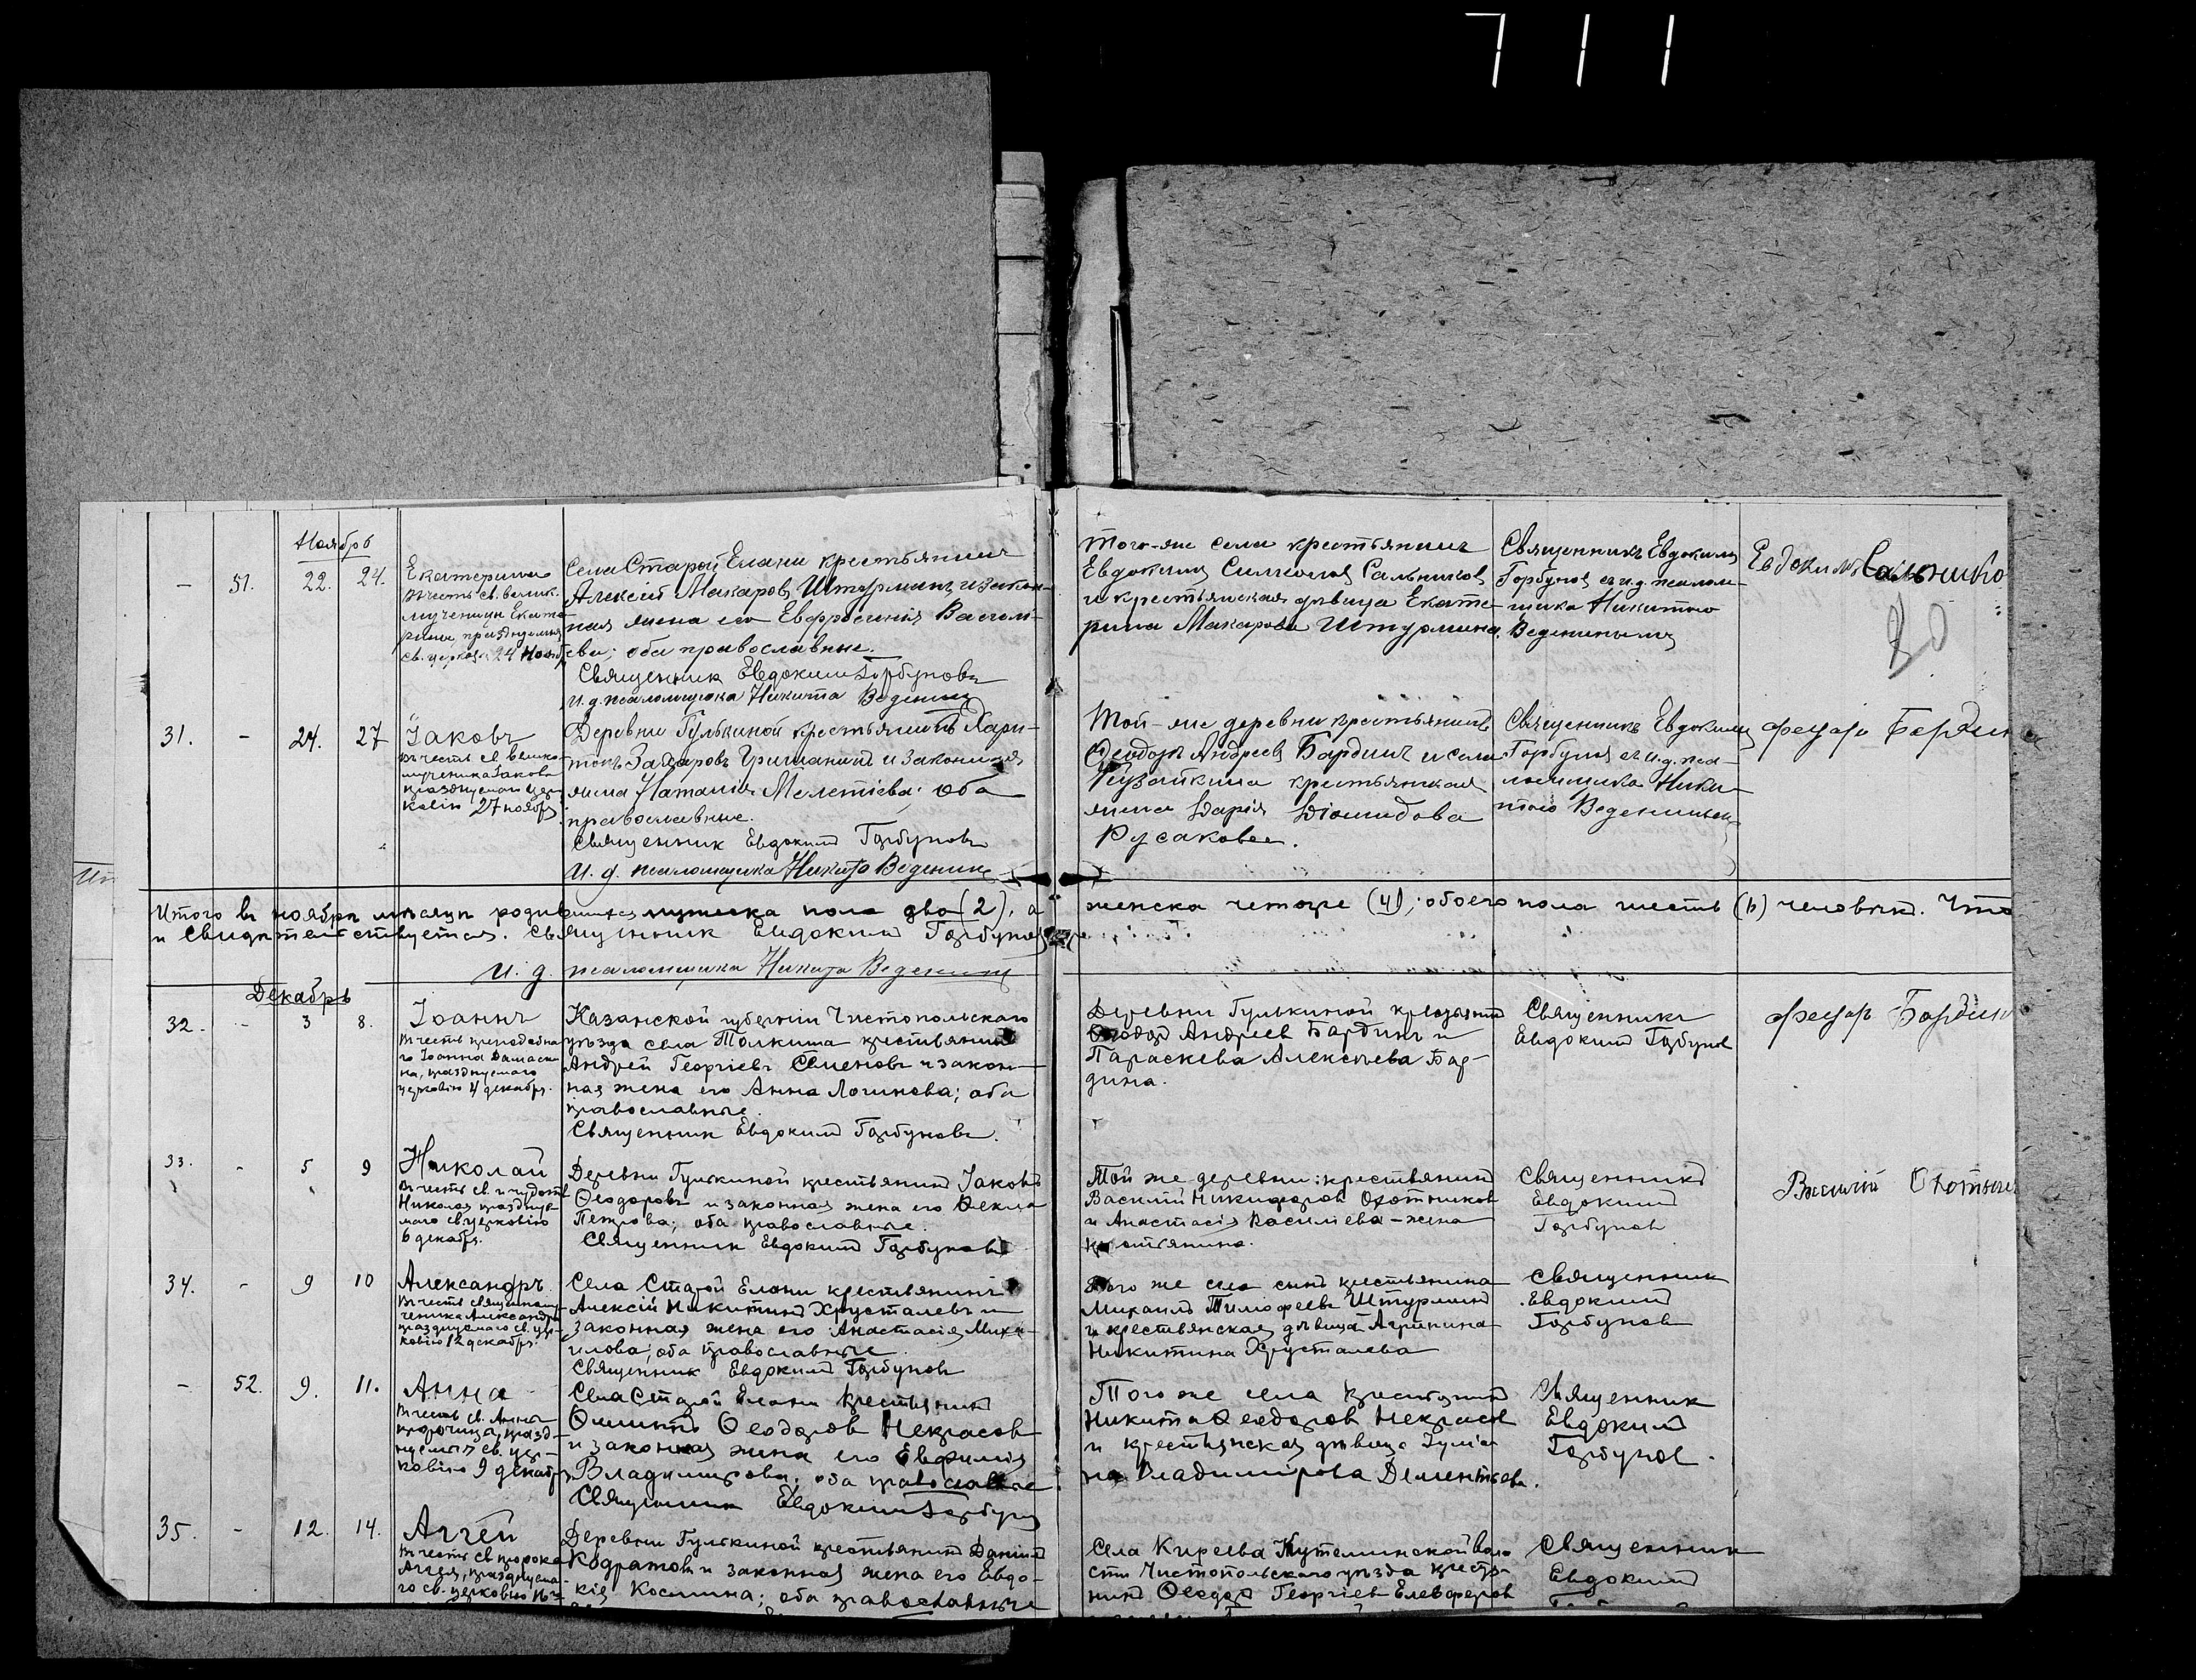 711
Ноябрь
— 51. 22. 24.
Екатерина
Въ честь св. велик.
мученицы Екате
рины, празднуемыя
св. церков. 24 Нояб.
Села Старой Елани крестьянинъ
Алексій Макаровъ Штурминъ и закон-
ная жена его Евфросинія Василь-
ева; оба православные.
Священникъ Евдокимъ Горбуновъ
И. д. псаломщика Никита Веденинъ
Того-же села крестьянинъ
Евдокимъ Сальниковъ
и крестьянская дѣвица Екате-
рина Макарова Штурмина.
Священникъ Евдокимъ
Горбуновъ съ и. д. псалом-
щика Никитою
Веденинымъ
Евдокимъ Сальнико
80
31. - 24. 27
Іаковъ
Въ честь св. велико
мученика Іакова
празднуемаго цер-
ковію 27 ноября
Деревни Гулькиной крестьянинъ Хари-
тонъ Захаровъ и законная
жена Наталія Мелетіева; оба
православные.
Священникъ Евдокимъ Горбуновъ
И. д. псаломщика Никита Веденинъ
Той-же деревни крестьянинъ
Ѳеодоръ Андреевъ Бардинъ и села
крестьянская
жена Дарія Діомидова
Русакова.
Священникъ Евдокимъ
Горбуновъ съ и. д. пса-
ломщика Ники-
тою Веденинымъ
Федоръ Бардин
Ит
Итого въ ноябрѣ мѣсяцѣ родившихся мужеска пола два (2), а женска четыре (4); обоего пола шесть (6) человѣкъ. Что
и свидѣтельствуется. Священникъ Евдокимъ Горбуновъ
И. д. псаломщика Никита Веденинъ
Декабрь
32. - 3 8.
Іоаннъ
Въ честь преподобна
го Іоанна Дамаски
на, празднуемаго
церковію 4 декабр.
Казанской губерніи Чистопольскаго
уѣзда села Толкиша крестьянинъ
Андрей Георгіевъ Семеновъ и закон-
ная жена его Анна Логинова; оба
православные.
Священникъ Евдокимъ Горбуновъ.
Деревни Гулькиной крестьянинъ
Ѳеодоръ Андреевъ Бардинъ и
Параскева Алексѣева Бар-
дина.
Священникъ
Евдокимъ Горбуновъ
Федоръ Бардин
33. - 5 9
Николай
Въ честь св. и чудотв.
Николая празднуе
маго св. церковію
6 декабр.
Деревни Гулькиной крестьянинъ Іаковъ
Ѳеодоровъ и законная жена его Ѳекла
Петрова; оба православные.
Священникъ Евдокимъ Горбуновъ
Той же деревни: крестьянинъ
Василій Никифоровъ Охотниковъ
и Анастасія Васильева - жена
крестьянина.
Священникъ
Евдокимъ
Горбуновъ
Василій Охотник
34. - 9 10
Александръ
Въ честь священному-
ченика Александра
празднуемаго св. цер-
ковію 12 декабр.
Села Старой Елани крестьянинъ
Алексій Никитинъ Хрусталевъ и
законная жена его Анастасія Миха-
илова; оба православные.
Священникъ Евдокимъ Горбуновъ
Того же села сынъ крестьянина
Михаилъ Тимофеевъ Штурминъ
и крестьянская дѣвица Агрипина
Никитина Хрусталева
Священникъ
Евдокимъ
Горбуновъ
- 52. 9. 11.
Анна
Въ честь св. Анны
пророчицы, празд-
нуемыя св. цер-
ковію 9 декабр.
Села Старой Елани крестьянинъ
Филиппъ Ѳеодоровъ Некрасовъ
и законная жена его Евфимія
Владимирова; оба православные
Священникъ Евдокимъ Горбуновъ
Того же села крестьянинъ
Никита Ѳеодоровъ Некрасовъ
и крестьянская дѣвица Іуліа
на Владимірова Дементьева.
Священникъ
Евдокимъ
Горбуновъ.
35. - 12. 14.
Аггей
Въ честь св. пророка
Аггея, празднуема-
го св. церковію
Деревни Гулькиной крестьянинъ Даніилъ
Кодратовъ и законная жена его Евдо-
кія Космина; оба православные
Села Киреева Кутеминской воло
сти Чистопольскаго уѣзда кресть-
янинъ Ѳеодоръ Георгіевъ Елевферовъ
Священникъ
Евдокимъ